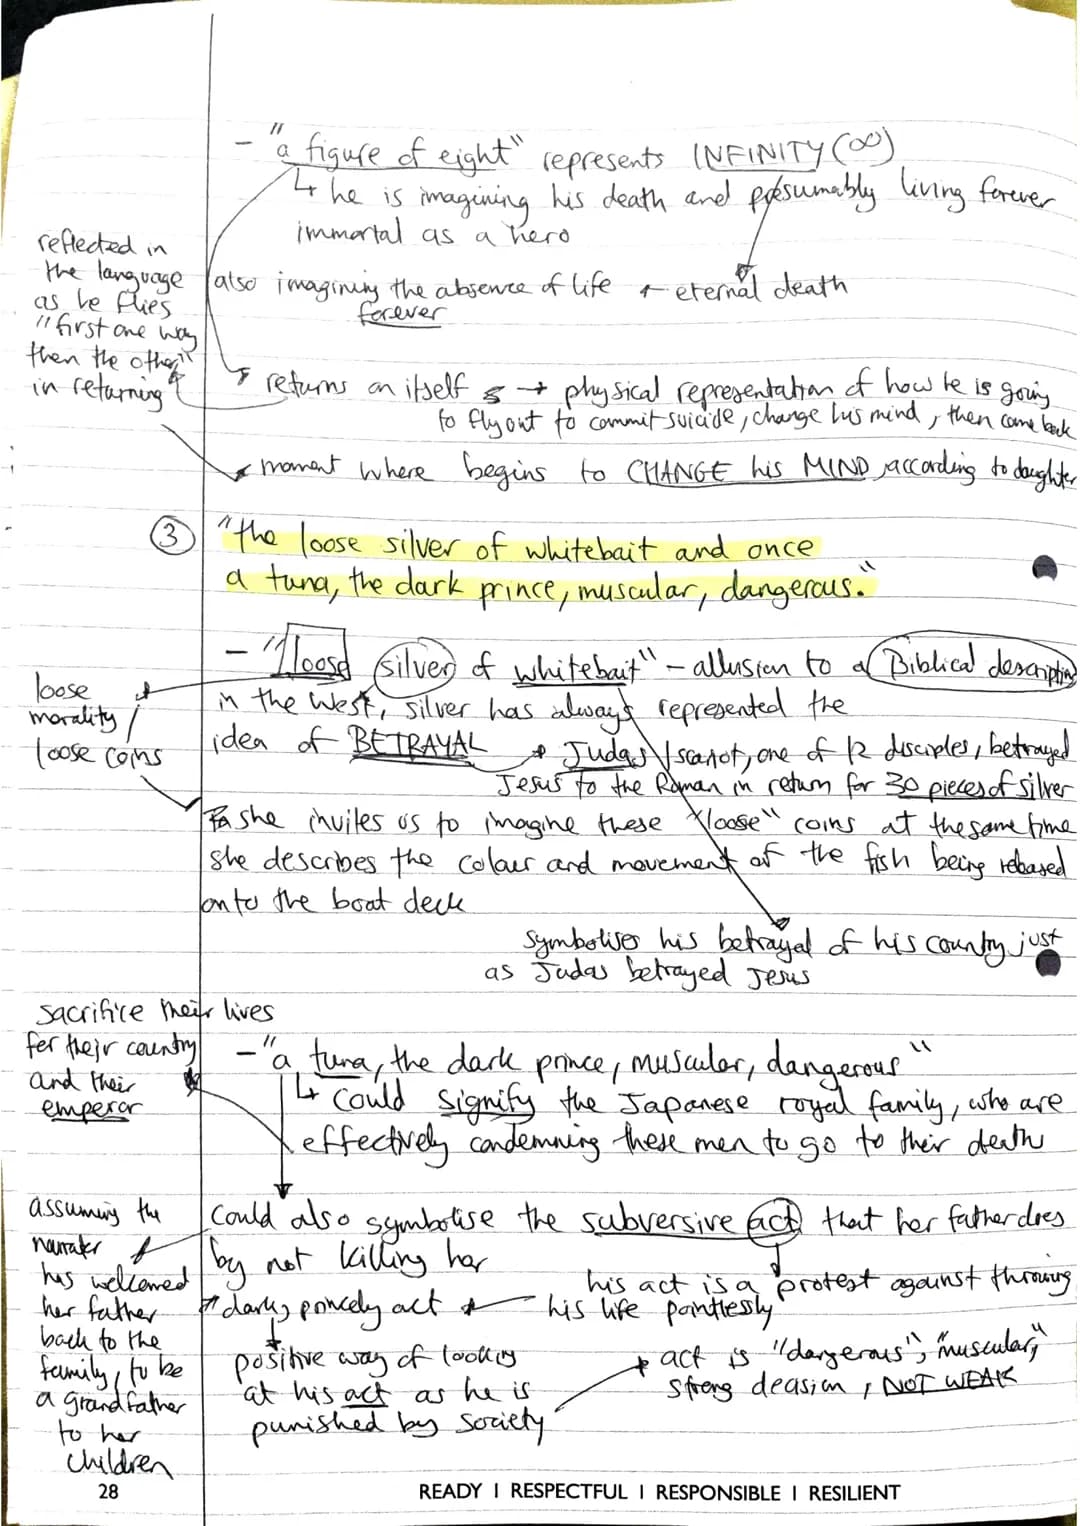 - "a figure of eight" represents INFINITY (∞)
↳ he is imagining his death and presumably living forever
immortal as a hero
also imagining the absence of life ← eternal death
forever
reflected in
the language
as he flies
"first one way
then the other"
in returning
returns on itself → physical representation of how he is going
to fly out to commit suicide, change his mind, then come back
moment where begins to CHANGE his MIND, according to daughter
③ "the loose silver of whitebait and once
a tuna, the dark prince, muscular, dangerous."
- "loose silver of whitebait" - allusion to a Biblical description
in the West, silver has always represented the
idea of BETRAYAL → Judas Iscariot, one of 12 disciples, betrayed
Jesus to the Roman in return for 30 pieces of silver
loose
morality/
loose coins
she invites us to imagine these "loose" coins at the same time
she describes the colour and movement of the fish being released
onto the boat deck
symbolises his betrayal of his country, just
as Judas betrayed Jesus
sacrifice their lives
for their country
and their
emperor
- "a tuna, the dark prince, muscular, dangerous"
↳ could signify the Japanese royal family, who are
effectively condemning these men to go to their death
could also symbolise the subversive act that her father does
by not killing her
his act is a protest against throwing
his life pointlessly
dark, princely act
positive way of looking
at his act as he is
punished by society
act is "dangerous", "muscular,"
strong decision, NOT WEAK
assuming the
narrator
has welcomed
her father
back to the
family, to be
a grandfather
to her
children
28
READY I RESPECTFUL I RESPONSIBLE I RESILIENT